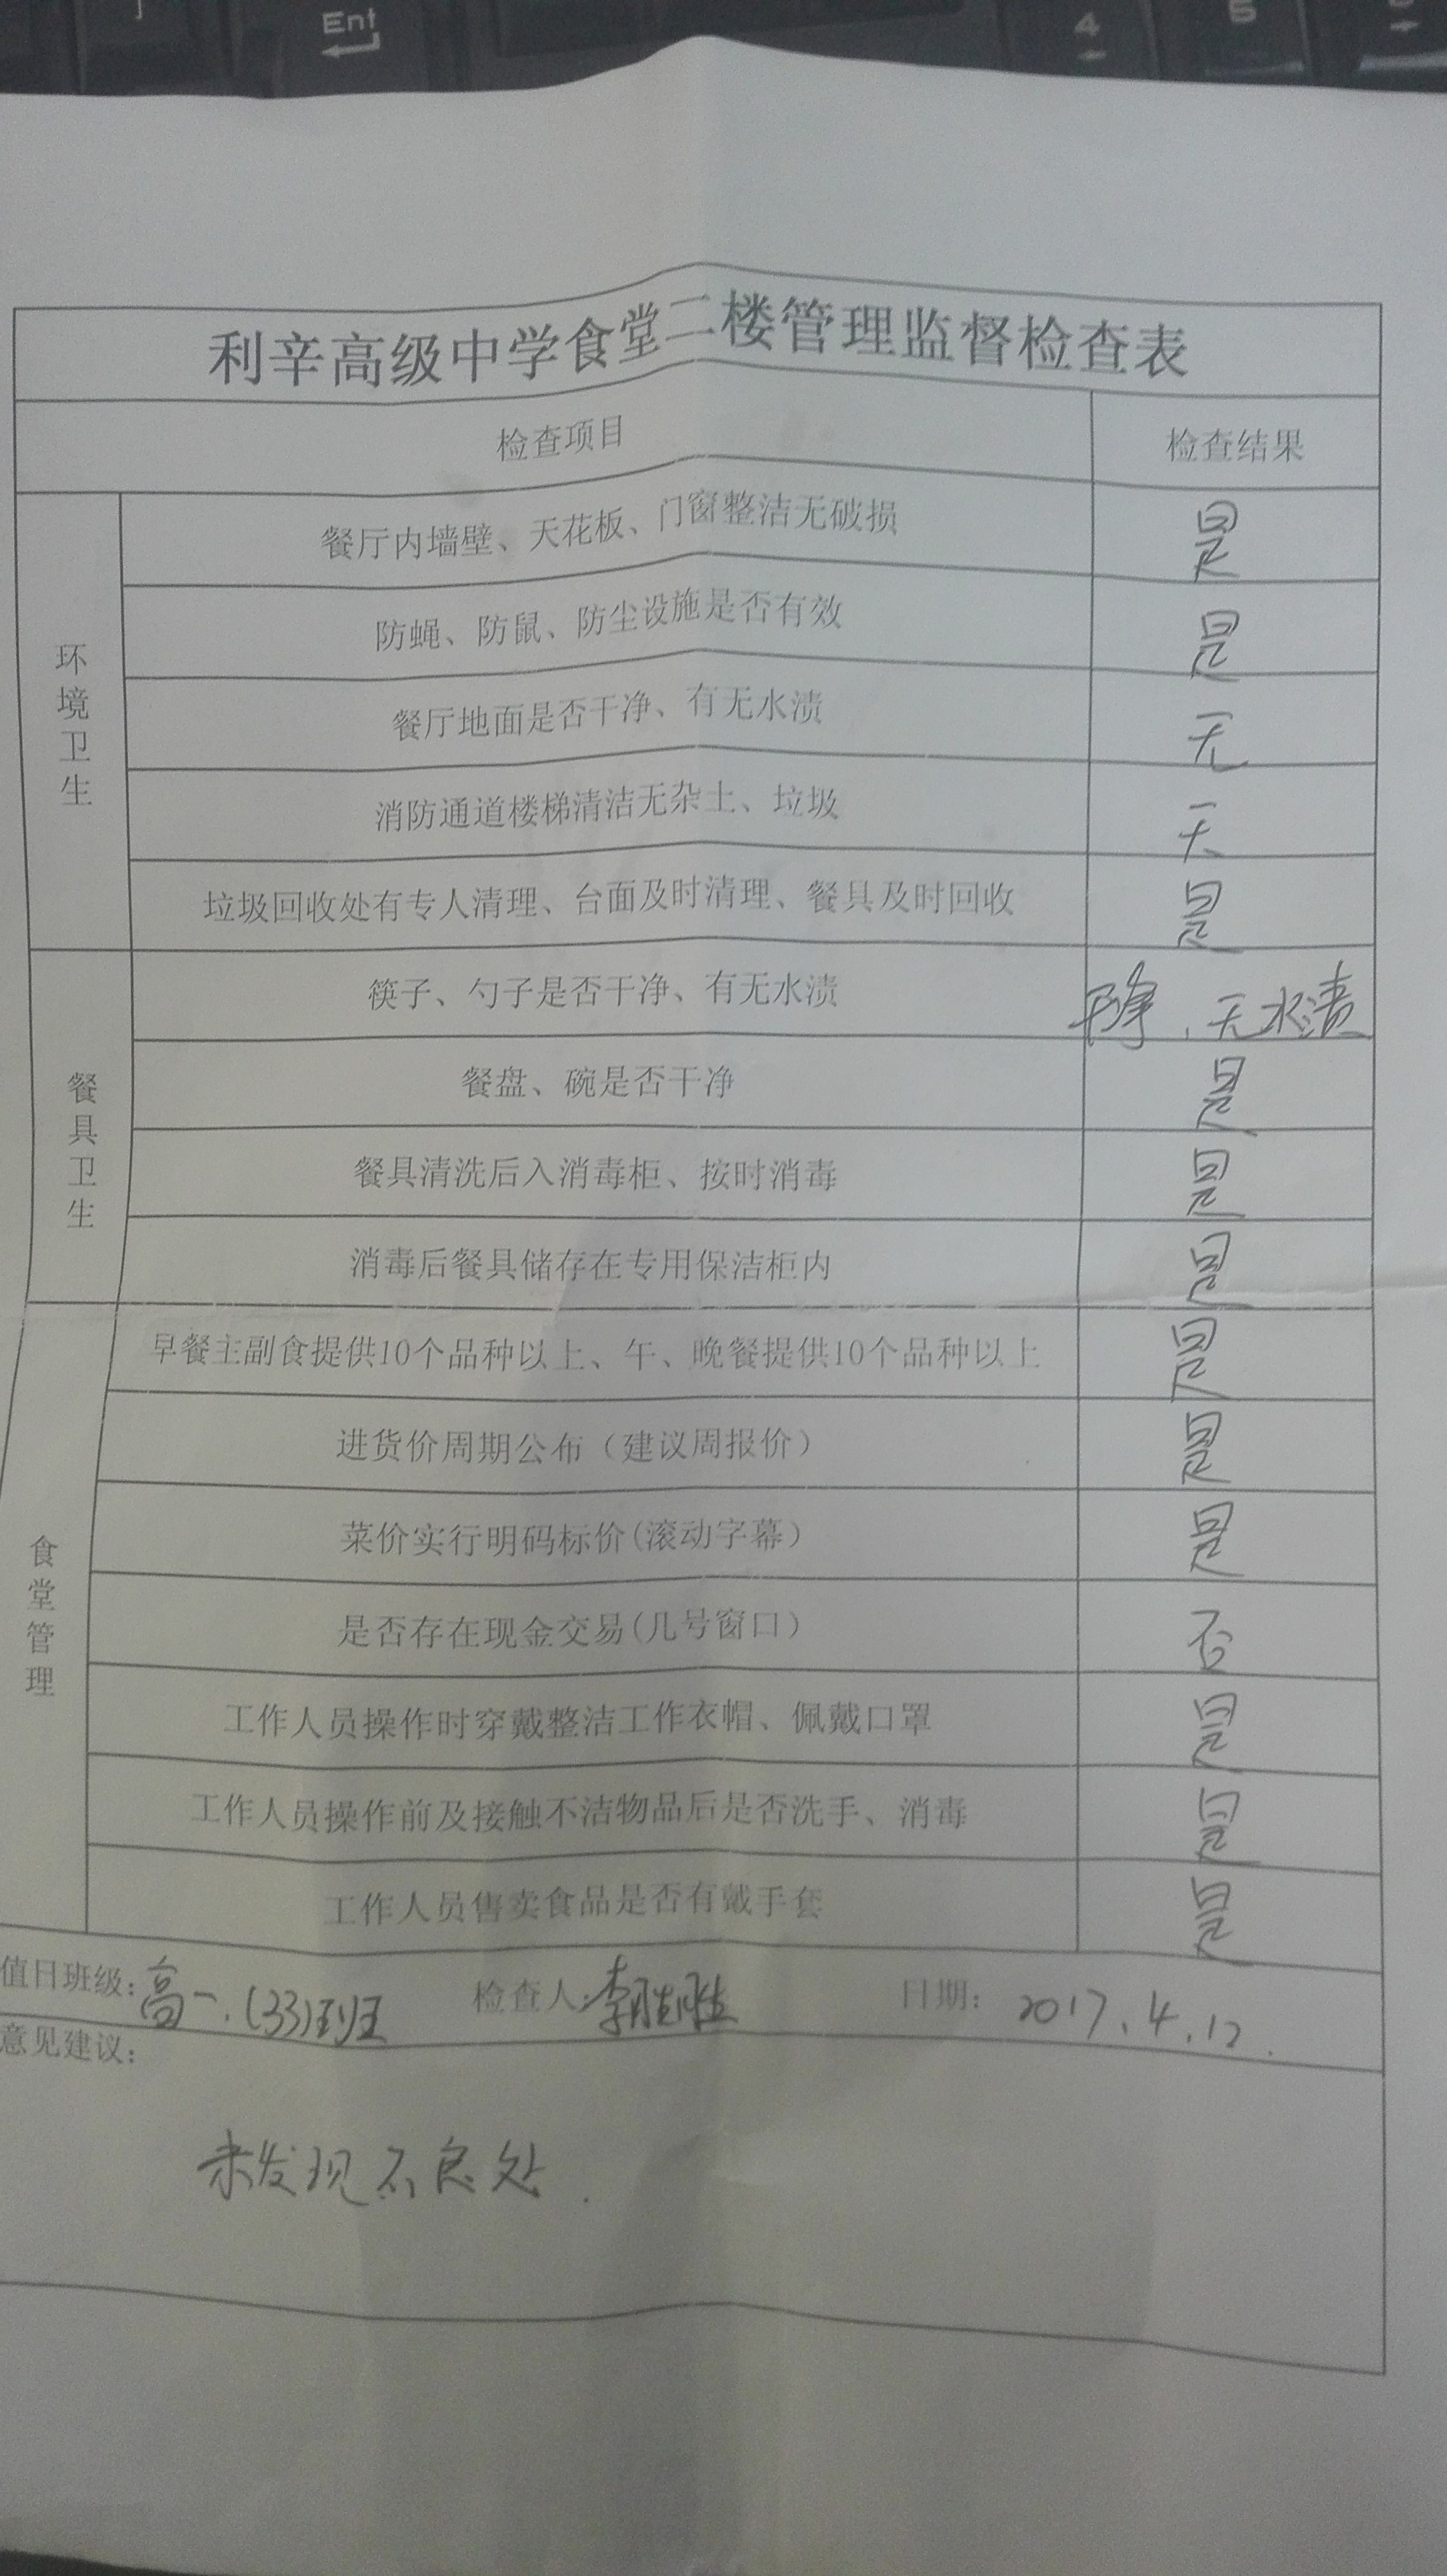 Ent
4
5
利辛高级中学食堂二楼管理监督检查表
检查项目 检查结果
环境卫生
餐厅内墙壁、天花板、门窗整洁无破损 是
防蝇、防鼠、防尘设施是否有效 是
餐厅地面是否干净、有无水渍 无
消防通道楼梯清洁无杂土、垃圾 无
垃圾回收处有专人清理、台面及时清理、餐具及时回收 是
餐具卫生
筷子、勺子是否干净、有无水渍 干净、无水渍
餐盘、碗是否干净 是
餐具清洗后入消毒柜、按时消毒 是
消毒后餐具储存在专用保洁柜内 是
食堂管理
早餐主副食提供10个品种以上、午、晚餐提供10个品种以上 是
进货价周期公布（建议周报价） 是
菜价实行明码标价(滚动字幕） 是
是否存在现金交易(几号窗口） 否
工作人员操作时穿戴整洁工作衣帽、佩戴口罩 是
工作人员操作前及接触不洁物品后是否洗手、消毒 是
工作人员售卖食品是否有戴手套 是
值日班级：高一.(33)班 检查人：李 日期：2017.4.12.
意见建议：
未发现不良处.